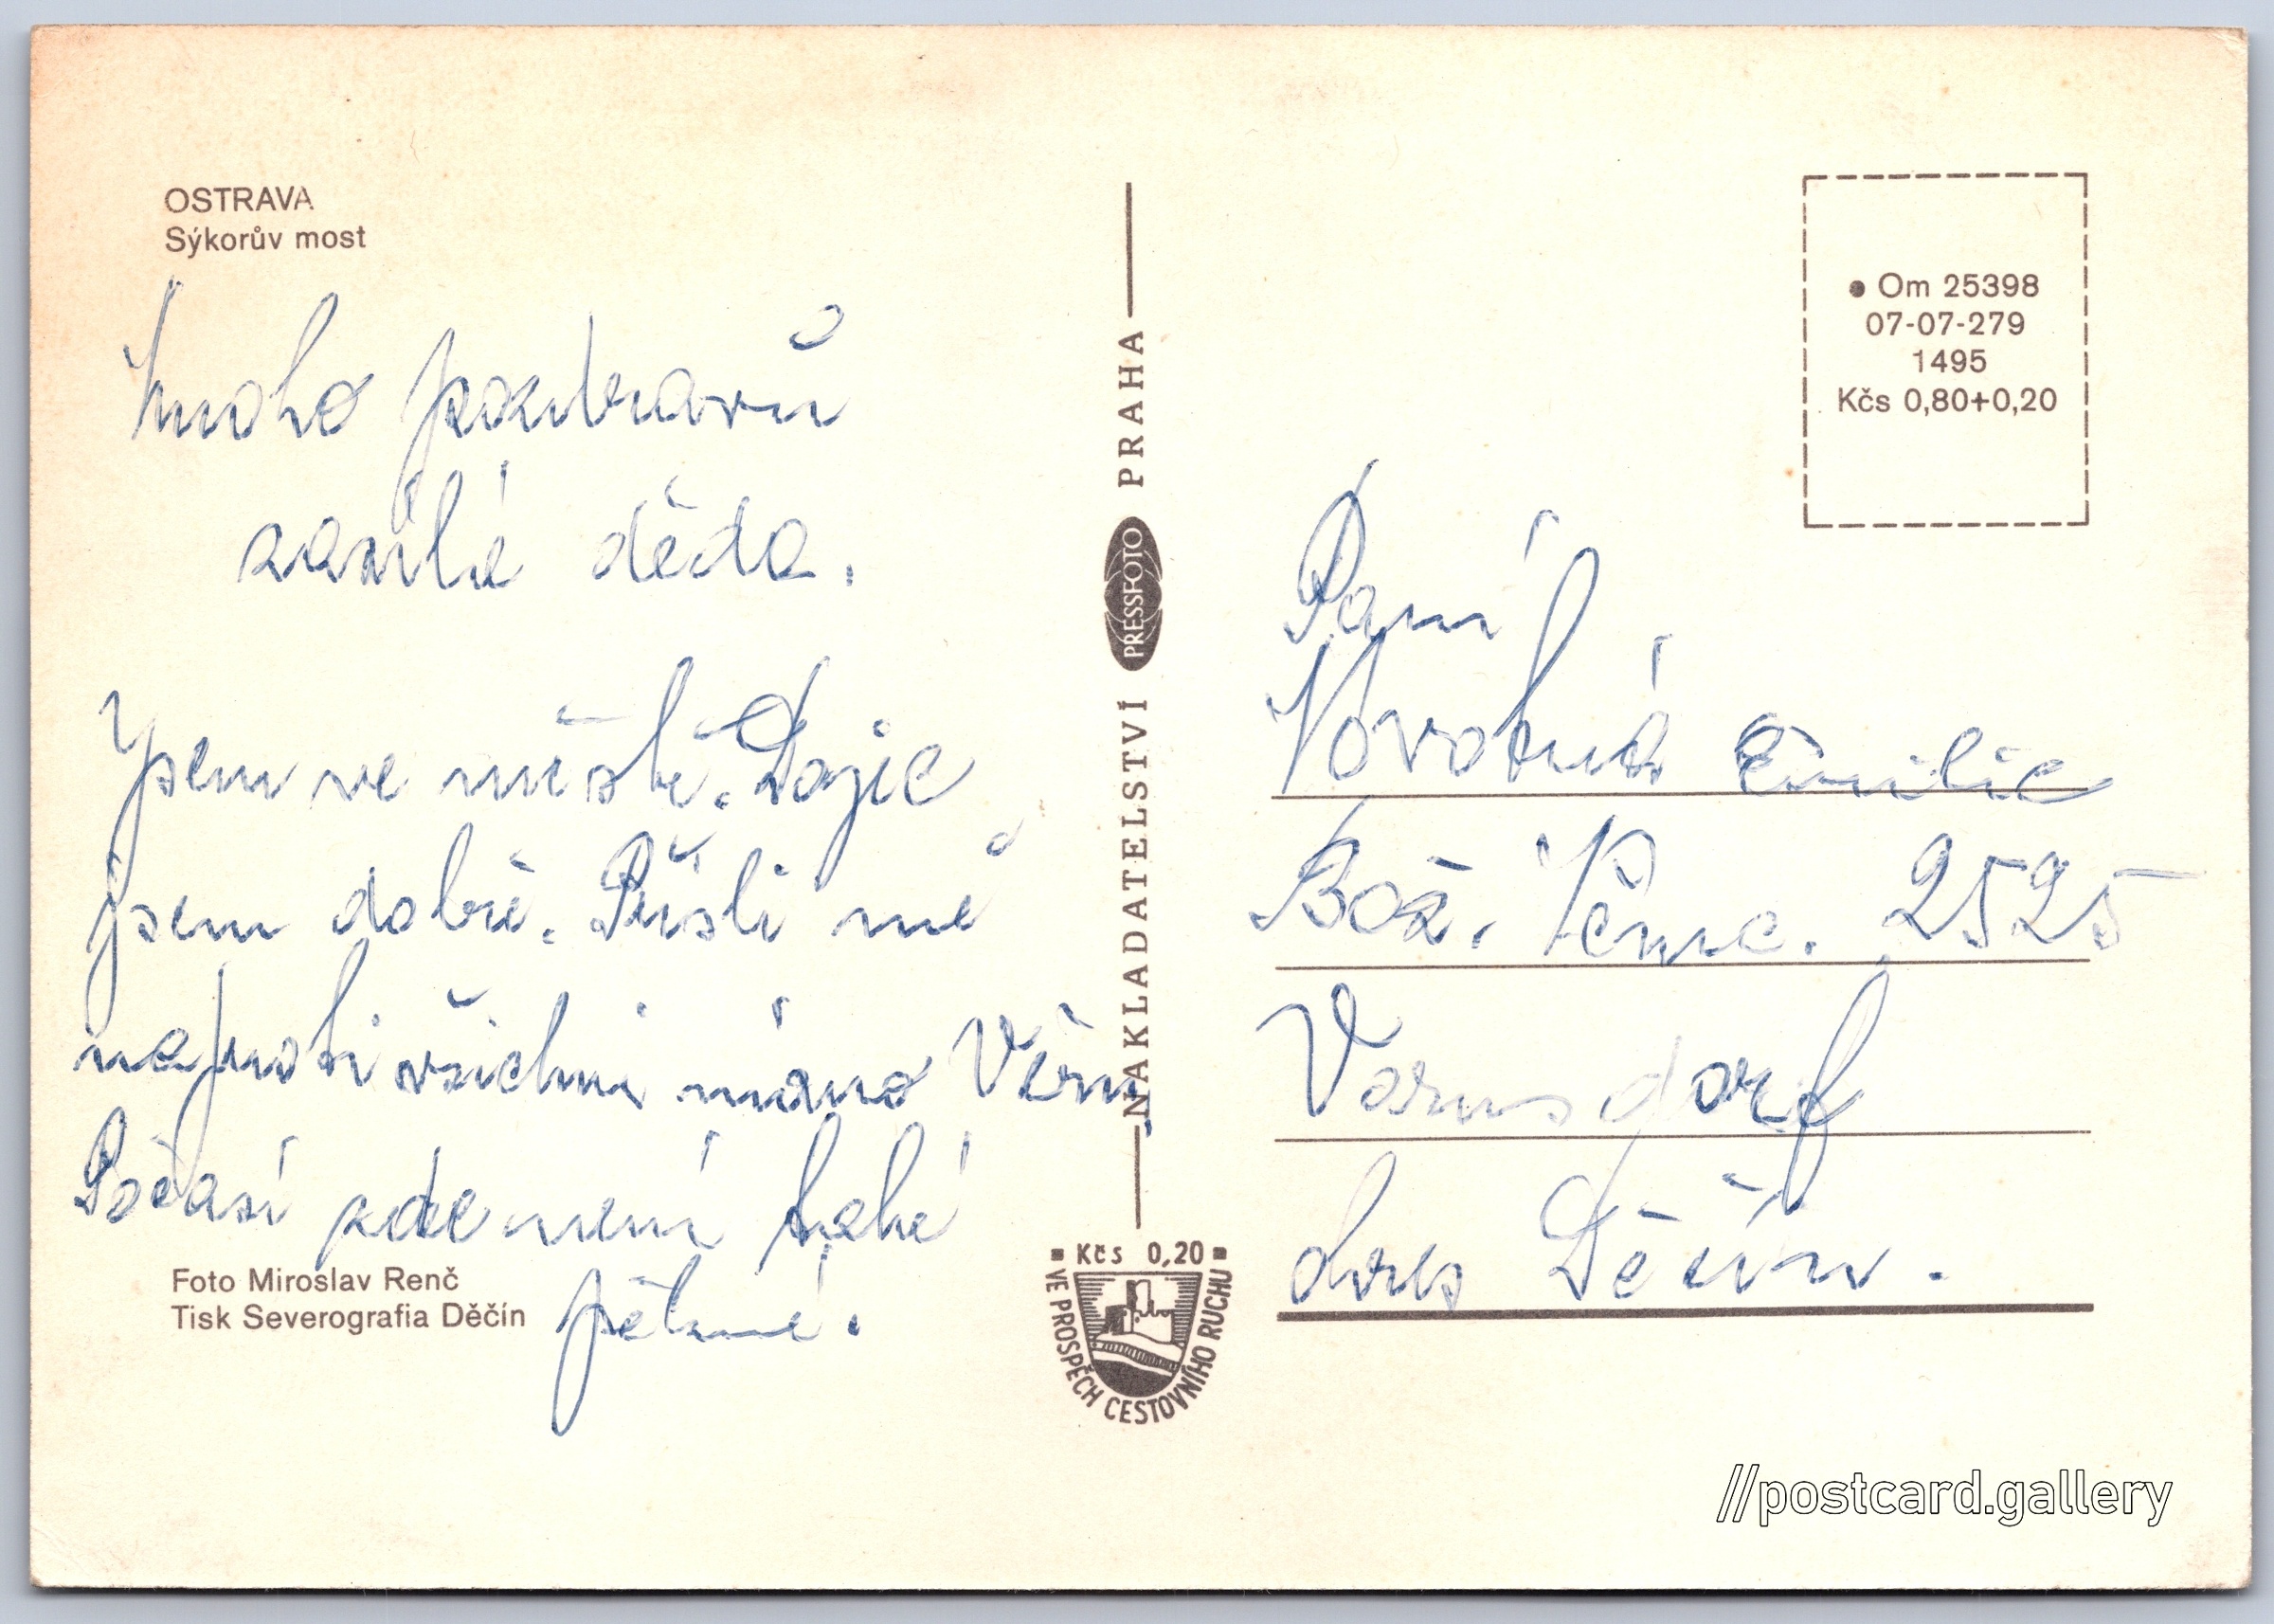 OSTRAVA
Sýkorův most
Mnoho pozdravů
děda.
Jsem ve městě. Dojel
jsem dobře. Přišli mě
naproti všichni mimo Věry
Počasí zde není také
pěkné.
Foto Miroslav Renč
Tisk Severografia Děčín
NAKLADATELSTVÍ PRESSFOTO PRAHA
Kčs 0,20
VE PROSPĚCH CESTOVNÍHO RUCHU
• Om 25398
07-07-279
1495
Kčs 0,80+0,20
Paní
Novotná Emilie
Bož. Němc. 2525
Varnsdorf
okres Děčín.
//postcard.gallery